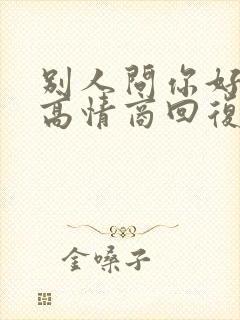 别人問你好
高情商回復
金嗓子